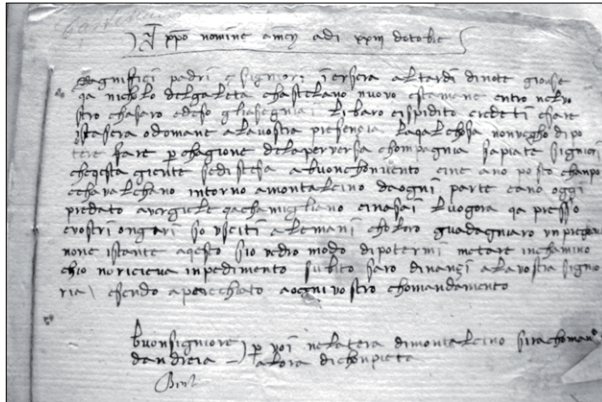 xpo nomine amen adi xxiii dotobre
Magnifici padri e signiori iersera altardi dinote giose
qa nicholo delghaleta chastelano nuovo estamane entro nelvo
stro chasaro edeso gliasegniai libaro eispidito credeti esare
istasera o domane alavostra presencia laqalchosa nonvegho dipo
tere fare p chagione delaperversa chompagnia sapiate signiori
cheqesta giente sedistesa abuonchonvento eine ano posto chanpo
echavalchano intorno amontalcino daogni parte eano oggi
predato a qachamigliano einasai luogora qa presso
evostri ongari so usciti alemani choloro guadagniaro
none istante aqesto sio vedro modo dipotermi metare inchamino
chio noricieva inpedimento subito saro dinanzi alavostra signio
ria esendo aparechiato aognivostro chomandamento
buonsigniore p voi nelatera dimontalcino sirachoman
dandreia alora dichonpieta